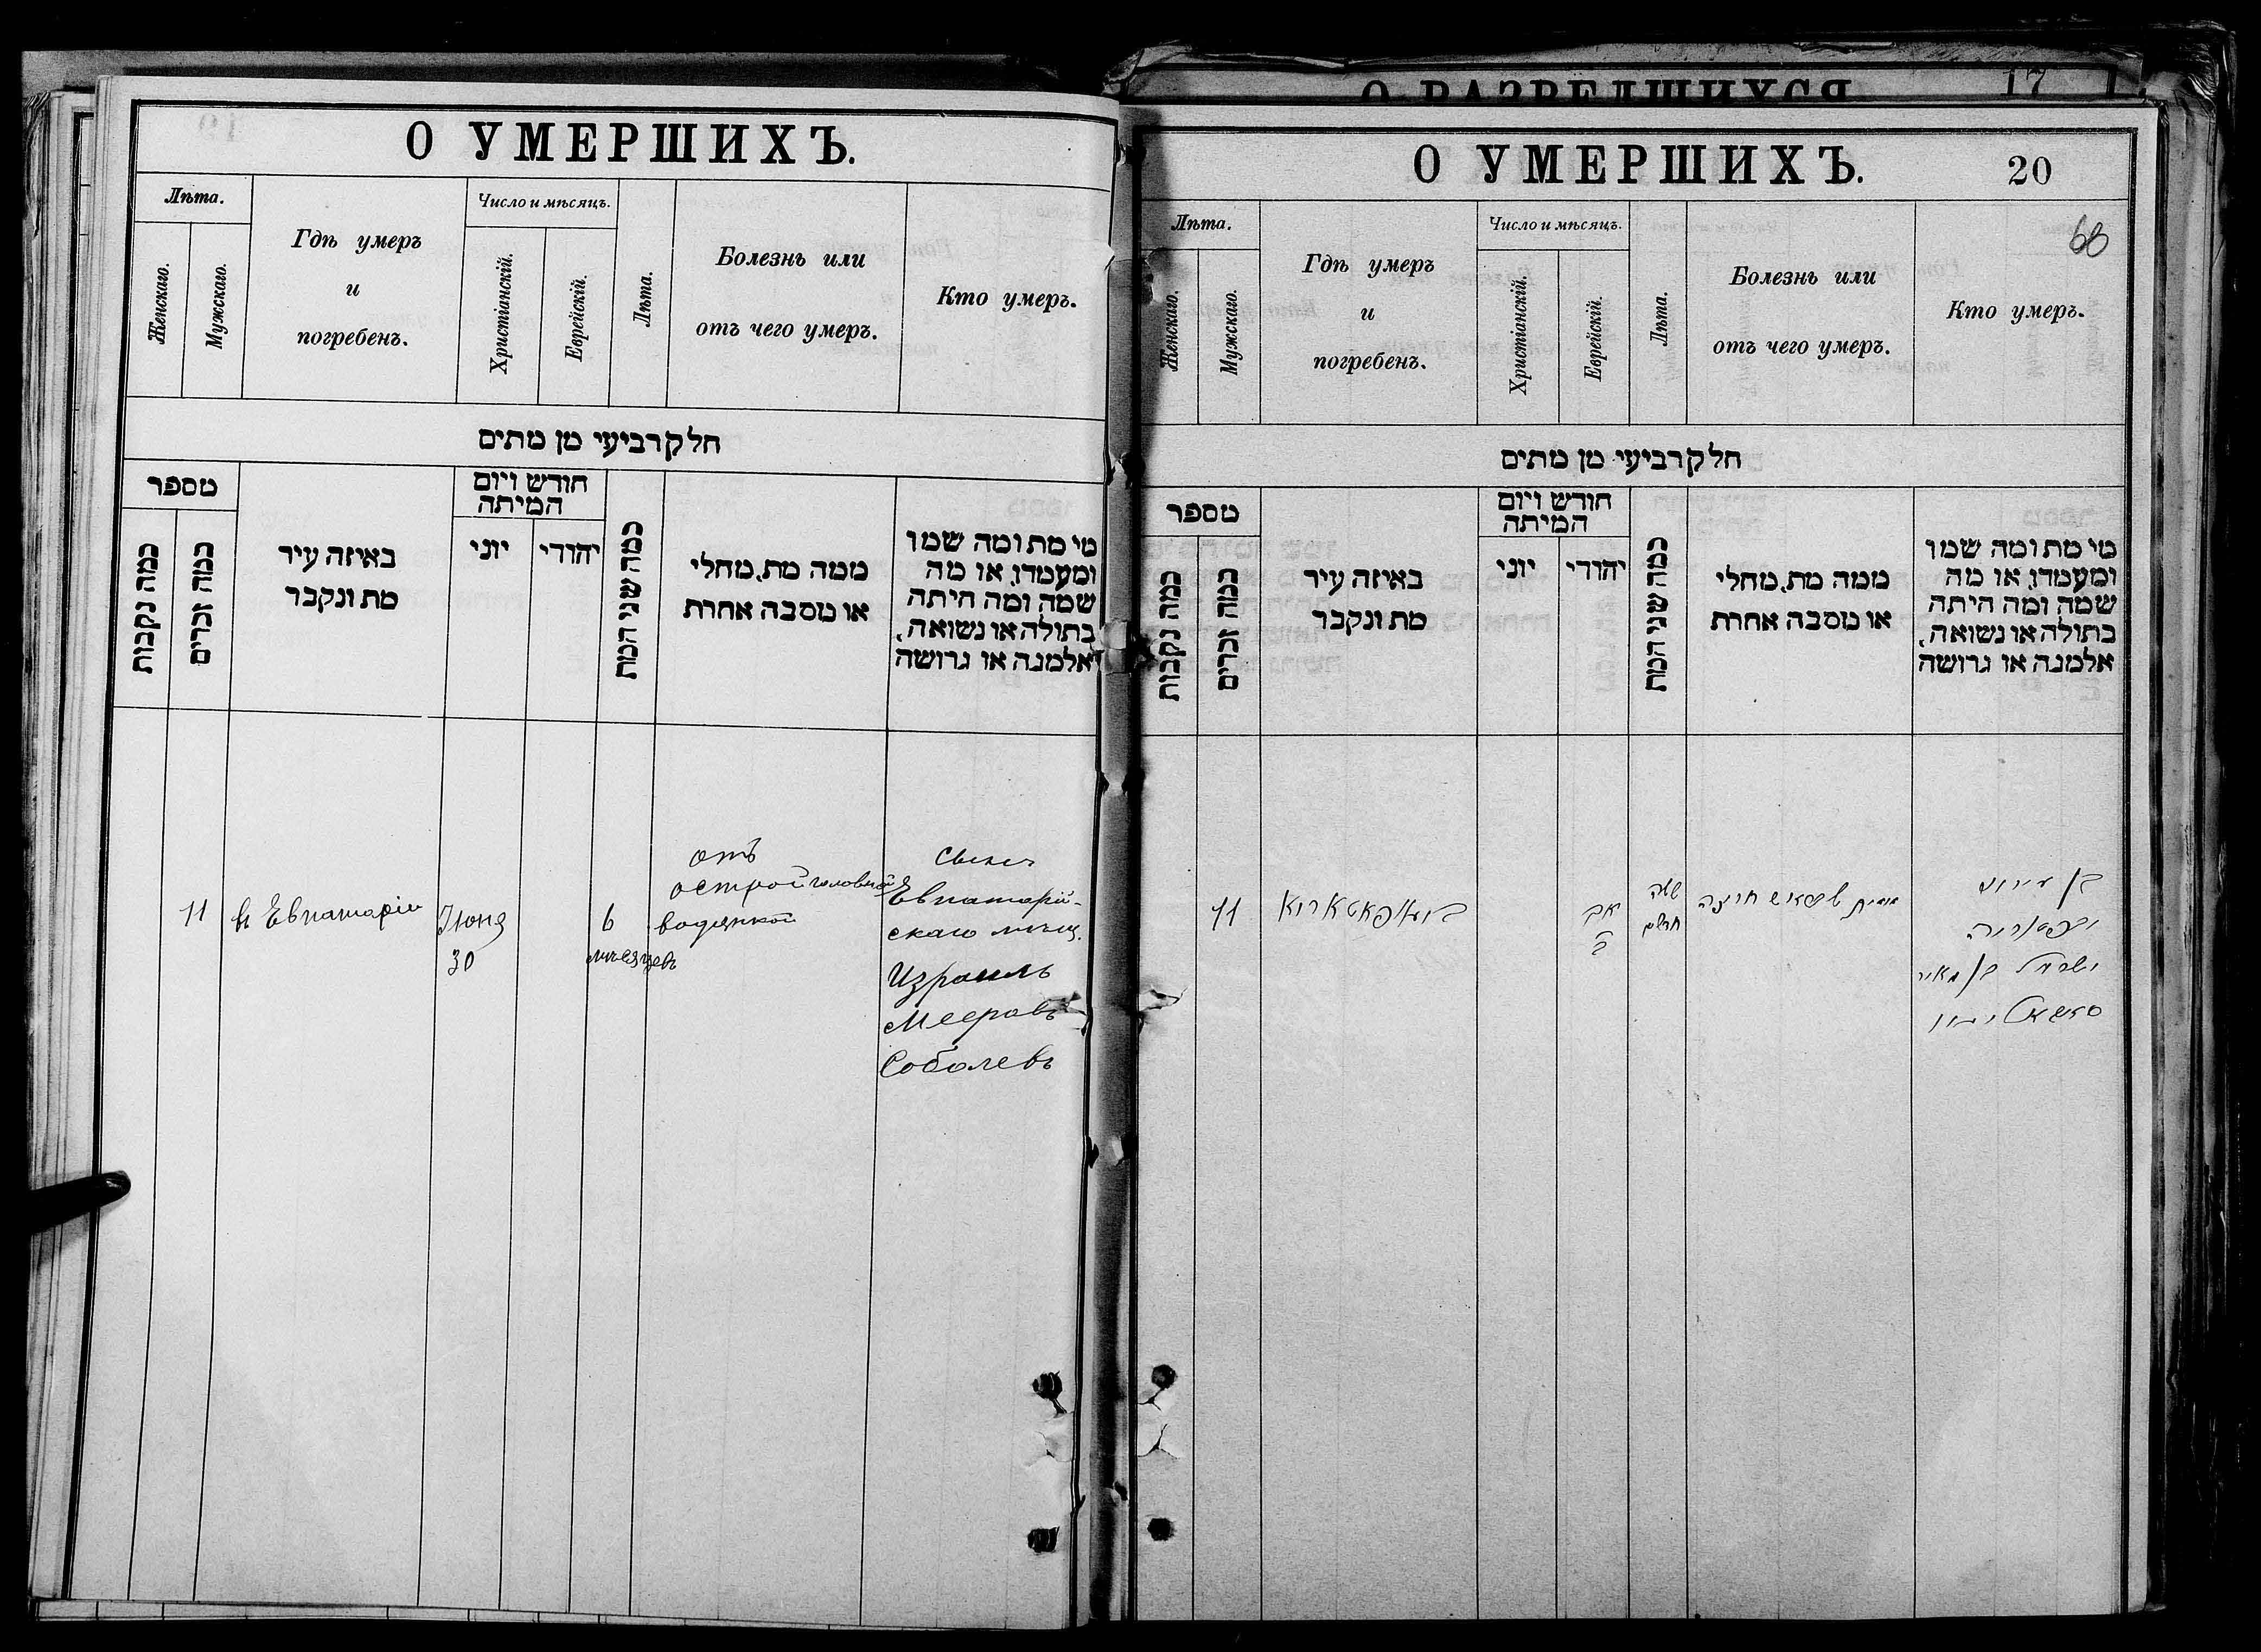 О УМЕРШИХЪ.
Лѣта.
Женскаго.
Мужскаго.
Гдѣ умеръ
и
погребенъ.
Число и мѣсяцъ.
Христіанскій.
Еврейскій.
Лѣта.
Болезнь или
отъ чего умеръ.
Кто умеръ.
חלק רביעי מן מתים
מספר
כמה נקבות
כמה זכרים
באיזה עיר
מת ונקבר
חודש ויום
המיתה
יוני
יהודי
כמה שני המת
ממה מת, מחלי
או מסבה אחרת
מי מת ומה שמו
ומעמדו, או מה
שמה ומה היתה
בתולה או נשואה,
אלמנה או גרושה
11
въ Евпаторіи
Іюня
30
6
мѣсяцевъ
отъ
острой головной
водянкой
Сынъ
Евпаторій-
скаго мѣщ.
Израиль
Мееровъ
Соболевъ
О РАЗВЕДШИХСЯ
17
О УМЕРШИХЪ.
20
68
Лѣта.
Женскаго.
Мужскаго.
Гдѣ умеръ
и
погребенъ.
Число и мѣсяцъ.
Христіанскій.
Еврейскій.
Лѣта.
Болезнь или
отъ чего умеръ.
Кто умеръ.
חלק רביעי מן מתים
מספר
כמה נקבות
כמה זכרים
באיזה עיר
מת ונקבר
חודש ויום
המיתה
יוני
יהודי
כמה שני המת
ממה מת, מחלי
או מסבה אחרת
מי מת ומה שמו
ומעמדו, או מה
שמה ומה היתה
בתולה או נשואה,
אלמנה או גרושה
11
אב
ששה
חדשים
בן
ישראל בן מאיר